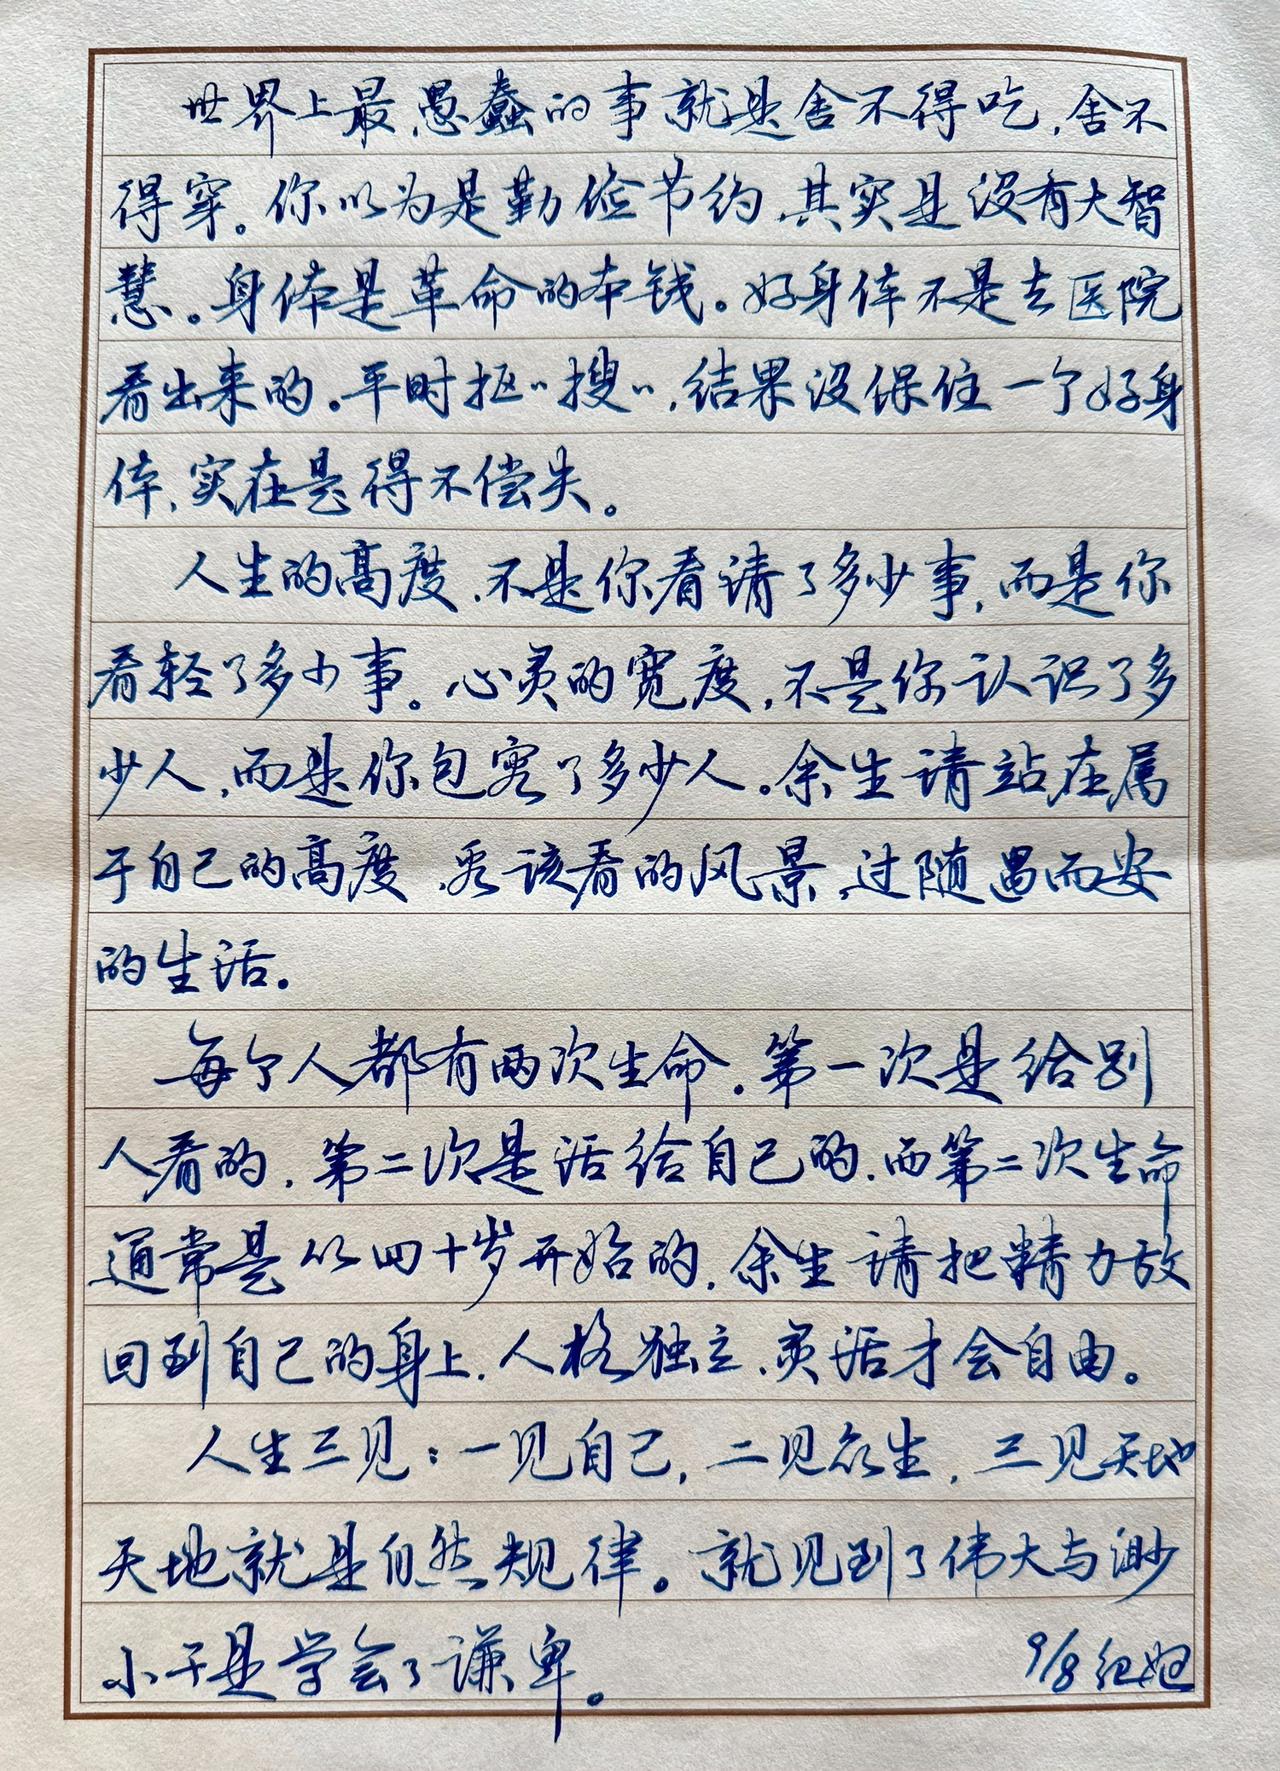 世界上最愚蠢的事就是舍不得吃,舍不
得穿。你以为是勤俭节约,其实是没有大智
慧。身体是革命的本钱。好身体不是去医院
看出来的。平时抠"搜",结果没保住一个好身
体,实在是得不偿失。
人生的高度,不是你看请了多少事,而是你
看轻了多少事。心灵的宽度,不是你认识了多
少人,而是你包容了多少人。余生请站在属
于自己的高度,看该看的风景,过随遇而安
的生活。
每个人都有两次生命。第一次是给别
人看的,第二次是活给自己的,而第二次生命
通常是从四十岁开始的,余生请把精力放
回到自己的身上,人格独立,灵活才会自由。
人生三见:一见自己,二见众生,三见天地
天地就是自然规律。就见到了伟大与渺
小于是学会了谦卑。
9/8